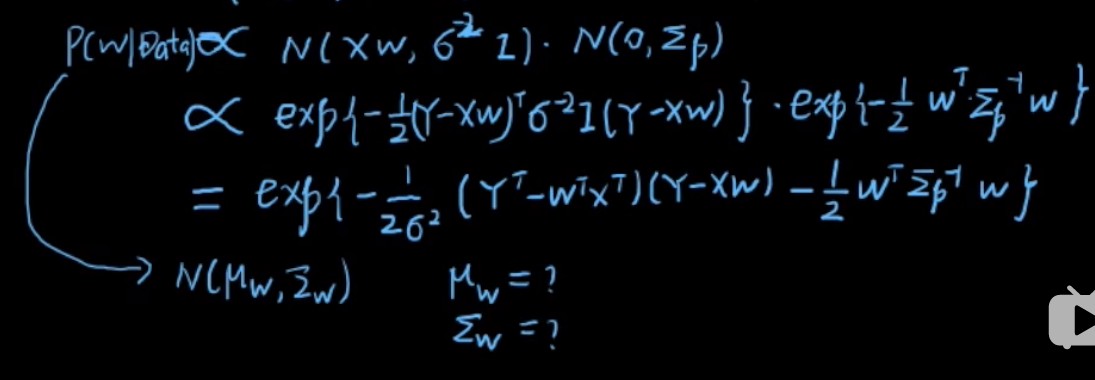 P(W|Data) ∝ N(XW, σ⁻² I) · N(0, Σp)
∝ exp{-1/2 (Y-XW)ᵀ σ⁻² I (Y-XW)} · exp{-1/2 wᵀ · Σp⁻¹ w}
= exp{-1/(2σ²) (Yᵀ-WᵀXᵀ)(Y-XW) - 1/2 Wᵀ Σp⁻¹ W}
N(μw, Σw) μw = ?
Σw = ?